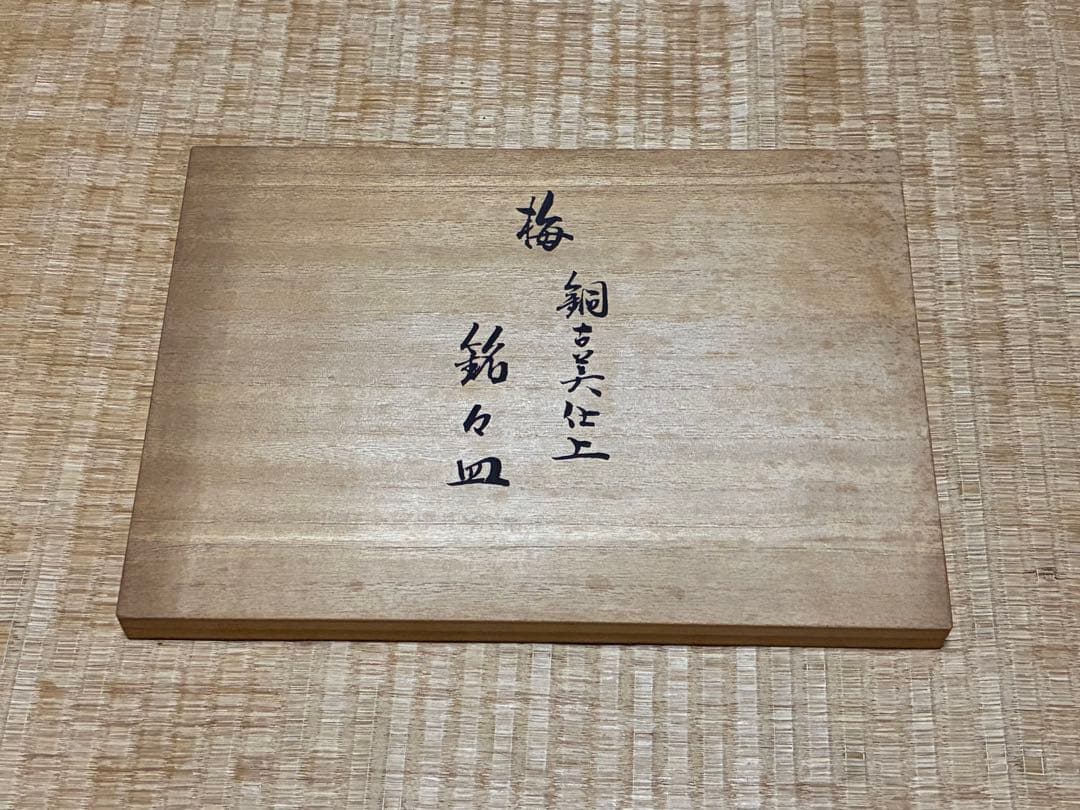 梅
銅古美仕上
銘々皿